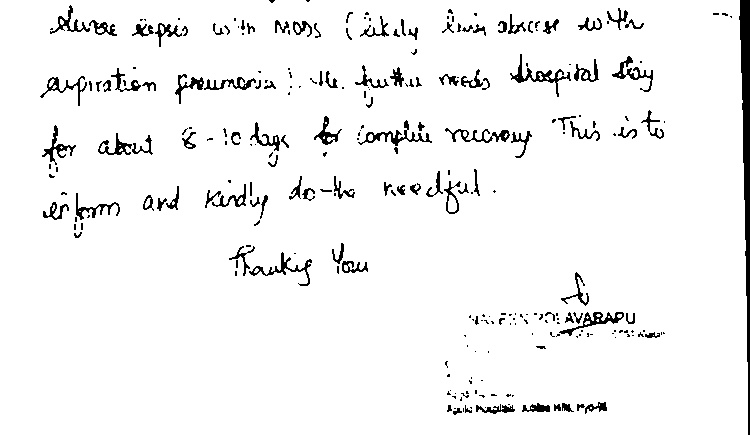 severe sepsis with MODS (likely liver abscess with
aspiration pneumonia). He further needs hospital stay
for about 8-10 days for complete recovery This is to
inform and kindly do the needful.
Thanking You
NAVEEN POLAVARAPU
Apollo Hospitals Jubilee Hills, Hyd-